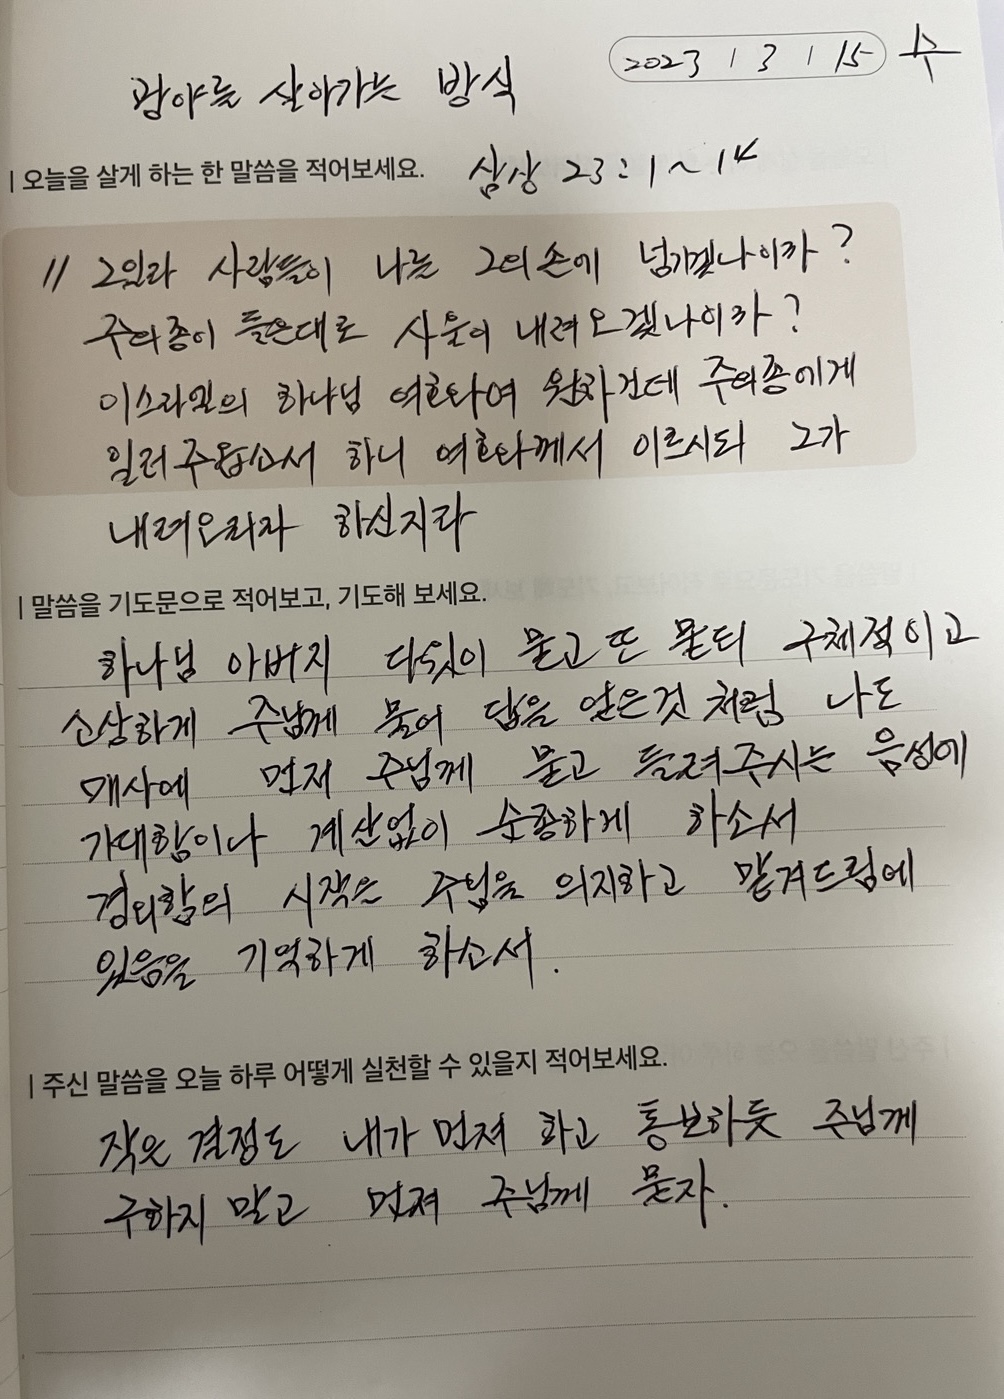 2023 / 3 / 15 수
광야를 살아가는 방식
| 오늘을 살게 하는 한 말씀을 적어보세요. 삼상 23:1~14
11 그일라 사람들이 나를 그의 손에 넘기겠나이까?
주의종이 들은대로 사울이 내려오겠나이까?
이스라엘의 하나님 여호와여 원하건데 주의종에게
일러주옵소서 하니 여호와께서 이르시되 그가
내려오리라 하신지라
| 말씀을 기도문으로 적어보고, 기도해 보세요.
하나님 아버지 다윗이 묻고 또 묻되 구체적이고
소상하게 주님께 물어 답을 얻은것 처럼 나도
매사에 먼저 주님께 묻고 들려주시는 음성에
가대함이나 계산없이 순종하게 하소서
경외함의 시작은 주님을 의지하고 맡겨드림에
있음을 기억하게 하소서.
| 주신 말씀을 오늘 하루 어떻게 실천할 수 있을지 적어보세요.
작은 결정도 내가 먼저 하고 통보하듯 주님께
구하지 말고 먼저 주님께 묻자.